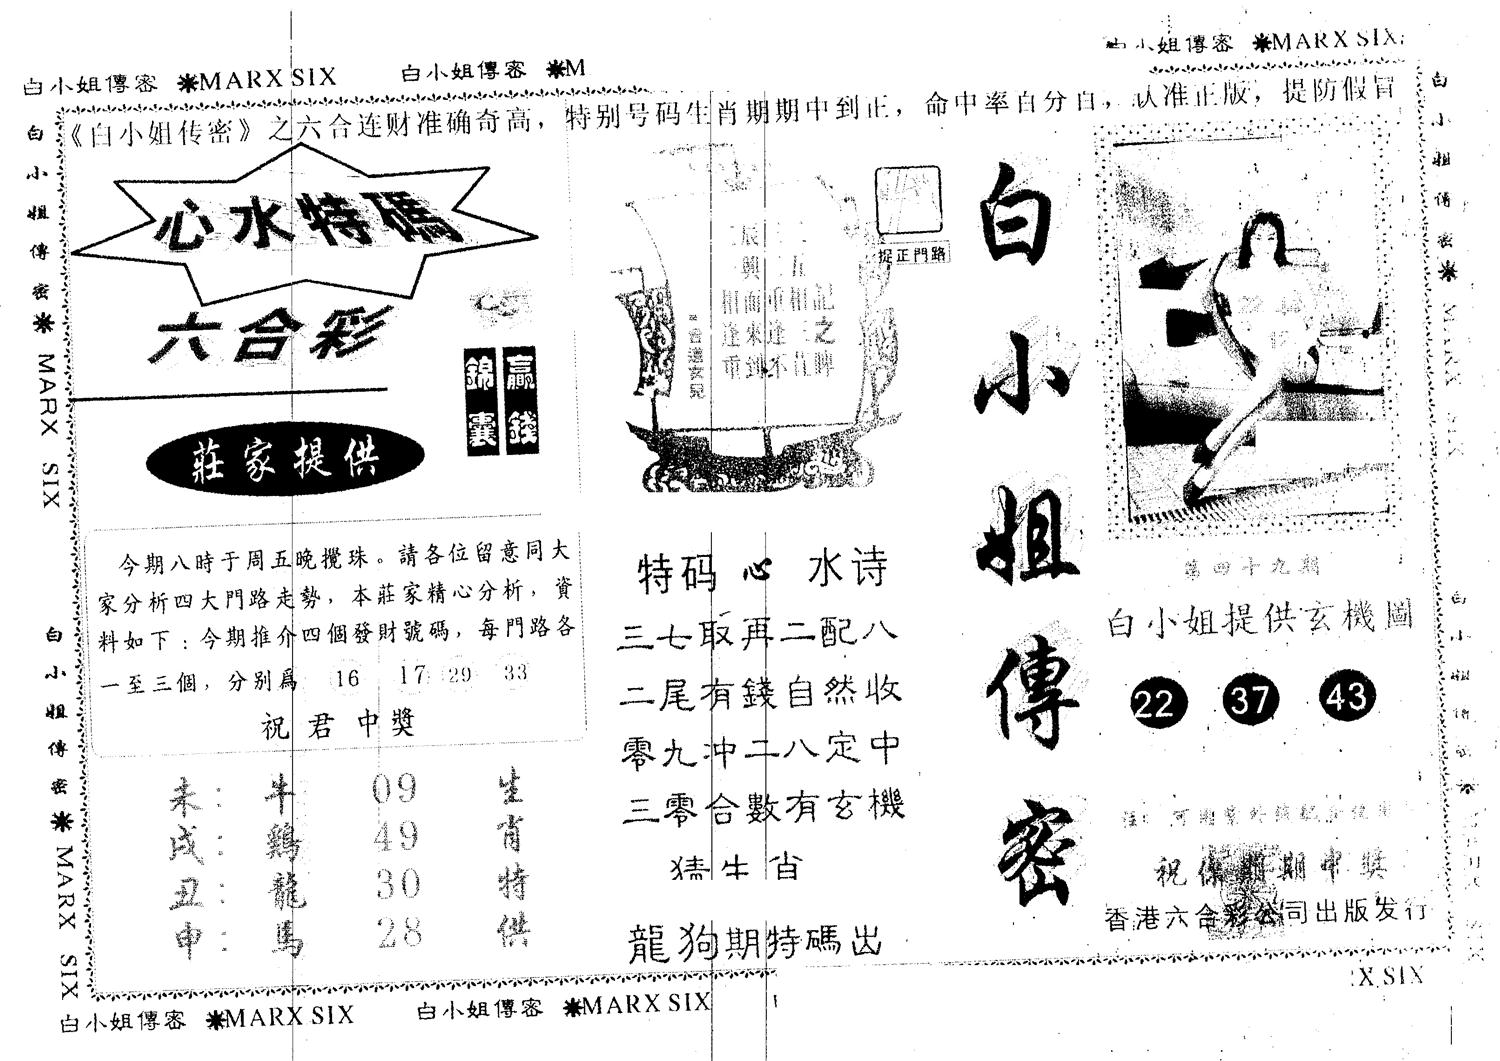 白小姐傳密 ✷MARX SIX 白小姐傳密 ✷M
小姐傳密 ✷MARX SIX
《白小姐传密》之六合连财准确奇高，特别号码生肖期期中到正，命中率百分百，认准正版，提防假冒
白小姐傳密✷ MARX SIX
白小姐傳密✷ MARX SIX
心水特碼
六合彩
贏錢
錦囊
莊家提供
今期八時于周五晚攪珠。請各位留意同大
家分析四大門路走勢，本莊家精心分析，資
料如下：今期推介四個發財號碼，每門路各
一至三個，分别爲 16 17 29 33
祝君中獎
未：牛 09 生
戌：鷄 49 肖
丑：龍 30 特
申：馬 28 供
捉正門路
相而重相記
逢來逢三之
重到不 碑
特码心水诗
三七取再二配八
二尾有錢自然收
零九冲二八定中
三零合數有玄機
猜生肖
龍狗期特碼出
白小姐傳密
第四十九期
白小姐提供玄機圖
22 37 43
期中獎
香港六合彩公司出版发行
白小姐傳密✷ MARX SIX
白小姐傳密✷
白小姐傳密 ✷MARX SIX 白小姐傳密 ✷MARX SIX
X SIX